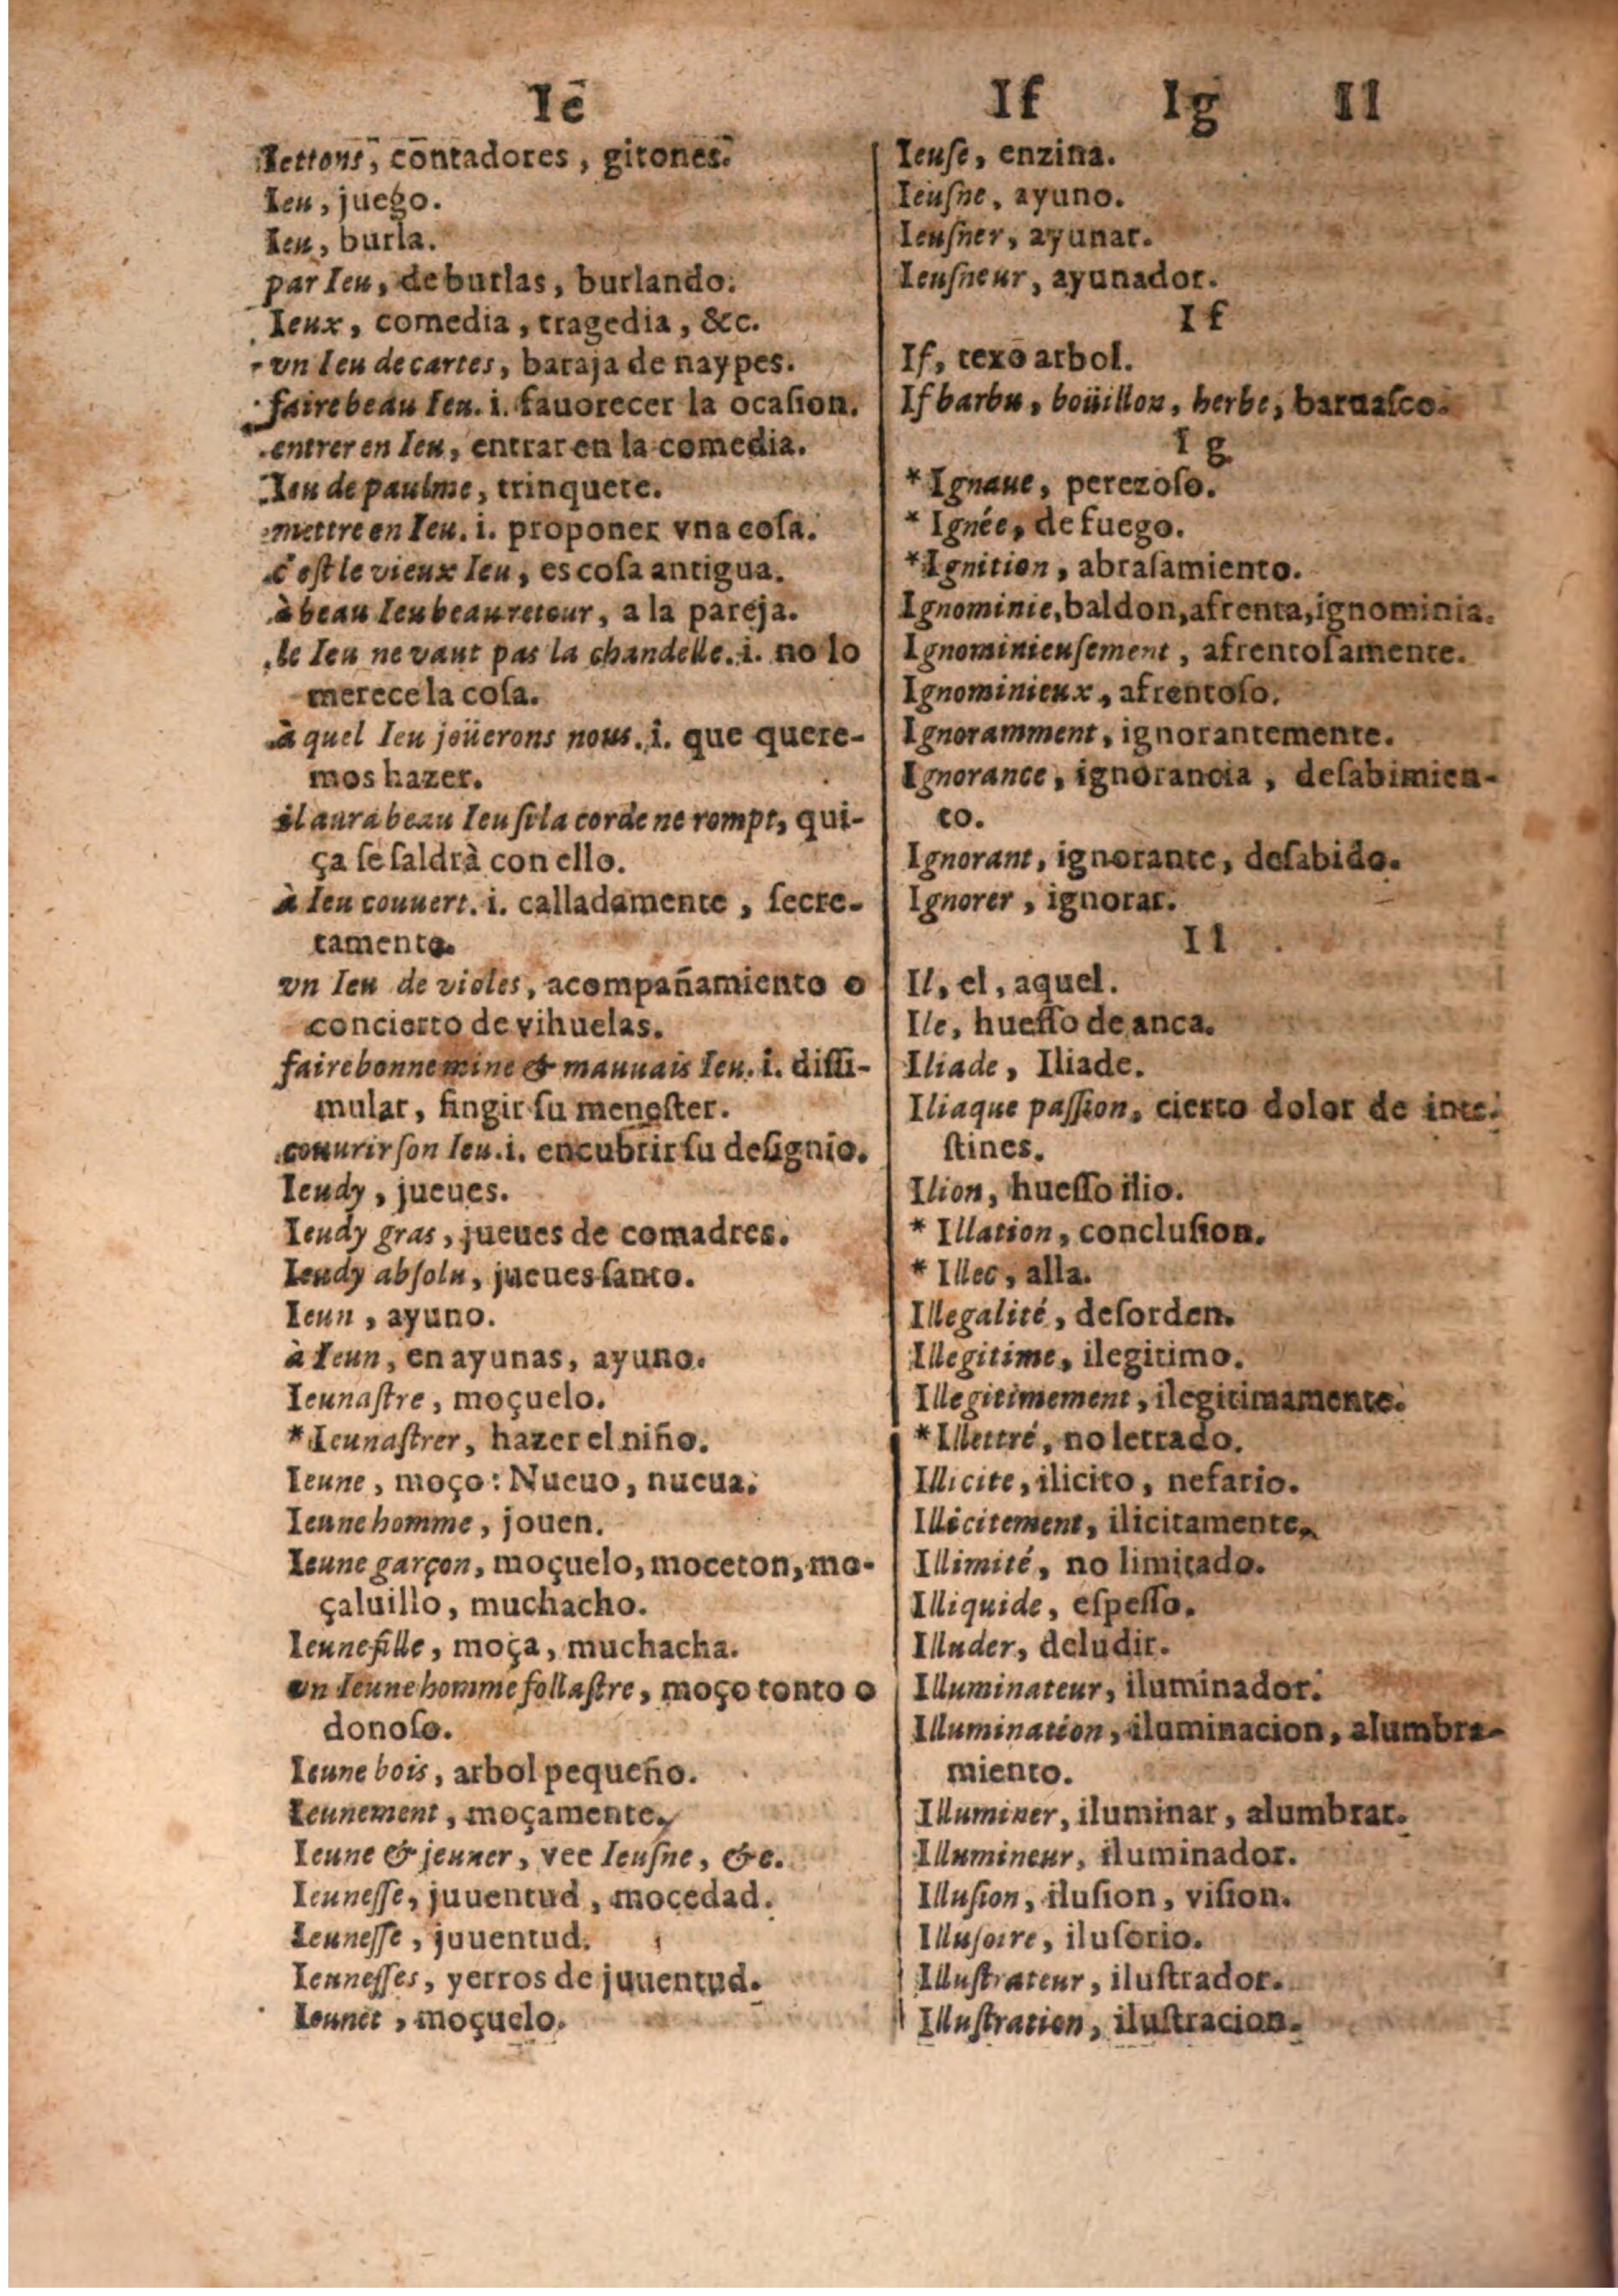 Iē
Iettons, contadores, gitones.
Ieu, juego.
Ieu, burla.
par Ieu, de burlas, burlando.
Ieux, comedia, tragedia, &c.
vn Ieu de cartes, baraja de naypes.
faire beau Ieu. i. fauorecer la ocaſion.
entrer en Ieu, entrar en la comedia.
Ieu de paulme, trinquete.
mettre en Ieu. i. proponer vna coſa.
c'eſt le vieux Ieu, es coſa antigua.
à beau Ieu beau retour, a la pareja.
le Ieu ne vaut pas la chandelle. i. no lo
merece la coſa.
à quel Ieu joüerons nous. i. que quere-
mos hazer.
il aura beau Ieu ſi la corde ne rompt, qui-
ça ſe ſaldrà con ello.
à Ieu couuert. i. calladamente, ſecre-
tamente.
vn Ieu de violes, acompañamiento o
concierto de vihuelas.
faire bonne mine & mauuais Ieu. i. diſſi-
mular, fingir ſu meneſter.
couurir ſon Ieu. i. encubrir ſu deſignio.
Ieudy, jueues.
Ieudy gras, jueues de comadres.
Ieudy abſolu, jueues ſanto.
Ieun, ayuno.
à Ieun, en ayunas, ayuno.
Ieunaſtre, moçuelo.
* Ieunaſtrer, hazer el niño.
Ieune, moço: Nueuo, nueua.
Ieune homme, jouen.
Ieune garçon, moçuelo, moceton, mo-
çaluillo, muchacho.
Ieune fille, moça, muchacha.
vn Ieune homme follaſtre, moço tonto o
donoſo.
Ieune bois, arbol pequeño.
Ieunement, moçamente.
Ieune & jeuner, vee Ieuſne, &c.
Ieuneſſe, juuentud, mocedad.
Ieuneſſe, juuentud.
Ieuneſſes, yerros de juuentud.
Ieunet, moçuelo.
If Ig Il
Ieuſe, enzina.
Ieuſne, ayuno.
Ieuſner, ayunar.
Ieuſneur, ayunador.
If
If, texo arbol.
If barbu, boüillon, herbe, baruaſco.
Ig
* Ignaue, perezoſo.
* Ignée, de fuego.
* Ignition, abraſamiento.
Ignominie, baldon, afrenta, ignominia.
Ignominieuſement, afrentoſamente.
Ignominieux, afrentoſo.
Ignoramment, ignorantemente.
Ignorance, ignorancia, deſabimien-
to.
Ignorant, ignorante, deſabido.
Ignorer, ignorar.
Il
Il, el, aquel.
Ile, hueſſo de anca.
Iliade, Iliade.
Iliaque paſſion, cierto dolor de inte-
ſtines.
Ilion, hueſſo ilio.
* Illation, concluſion.
* Illec, alla.
Illegalité, deſorden.
Illegitime, ilegitimo.
Illegitimement, ilegitimamente.
* Illettré, no letrado.
Illicite, ilicito, nefario.
Illicitement, ilicitamente.
Illimité, no limitado.
Illiquide, eſpeſſo.
Illuder, deludir.
Illuminateur, iluminador.
Illumination, iluminacion, alumbra-
miento.
Illuminer, iluminar, alumbrar.
Illumineur, iluminador.
Illuſion, iluſion, viſion.
Illuſoire, iluſorio.
Illuſtrateur, iluſtrador.
Illuſtration, iluſtracion.